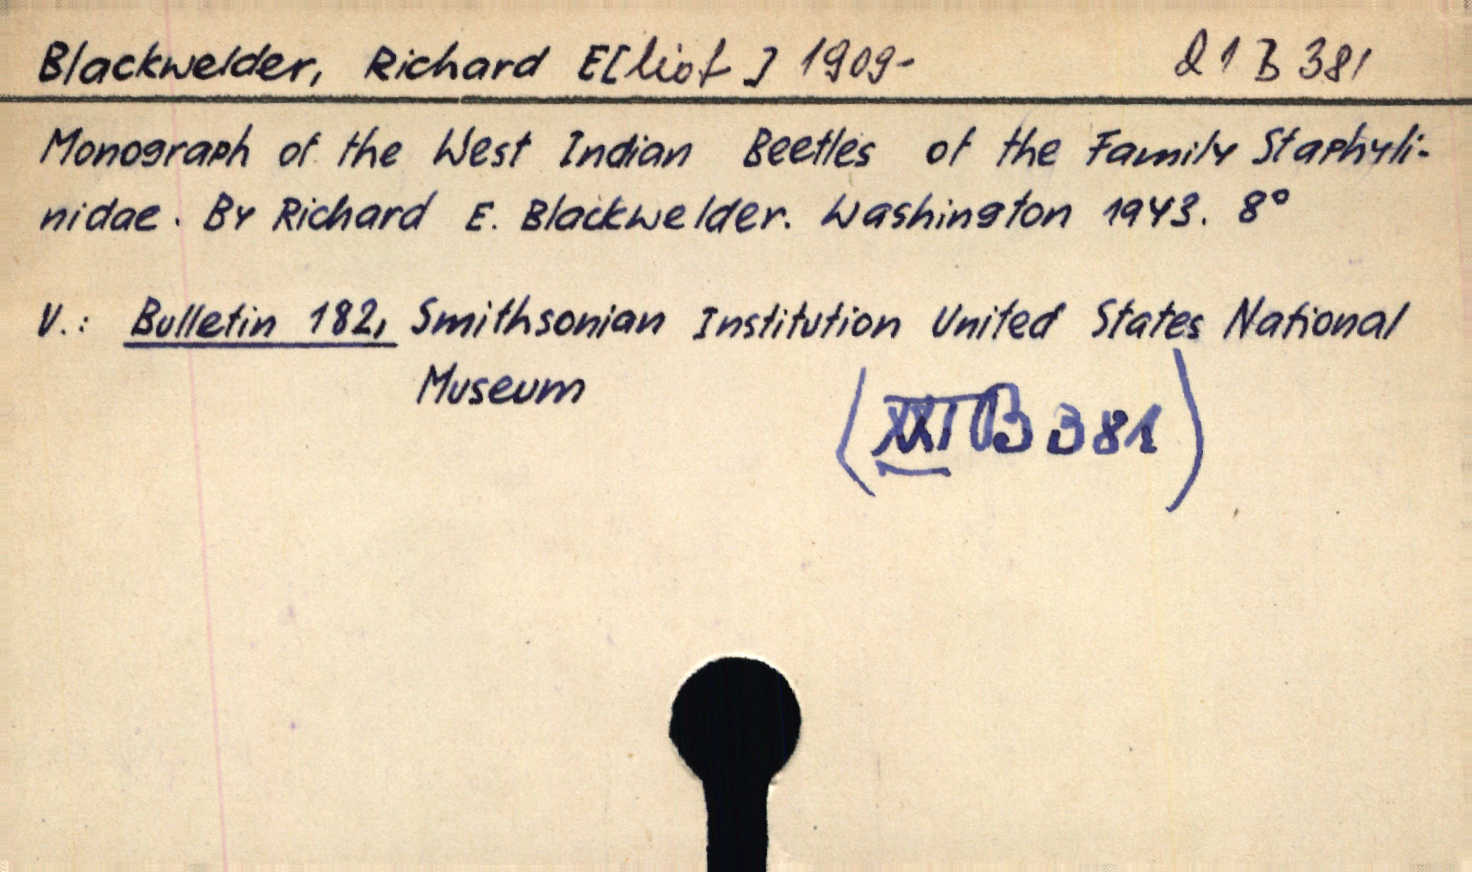 Blackwelder, Richard E[liot] 1909-
21 B 381
Monograph of the West Indian Beetles of the Family Staphyli-
nidae. By Richard E. Blackwelder. Washington 1943. 8°
V.: Bulletin 182, Smithsonian Institution United States National
Museum
(XXI B 381)